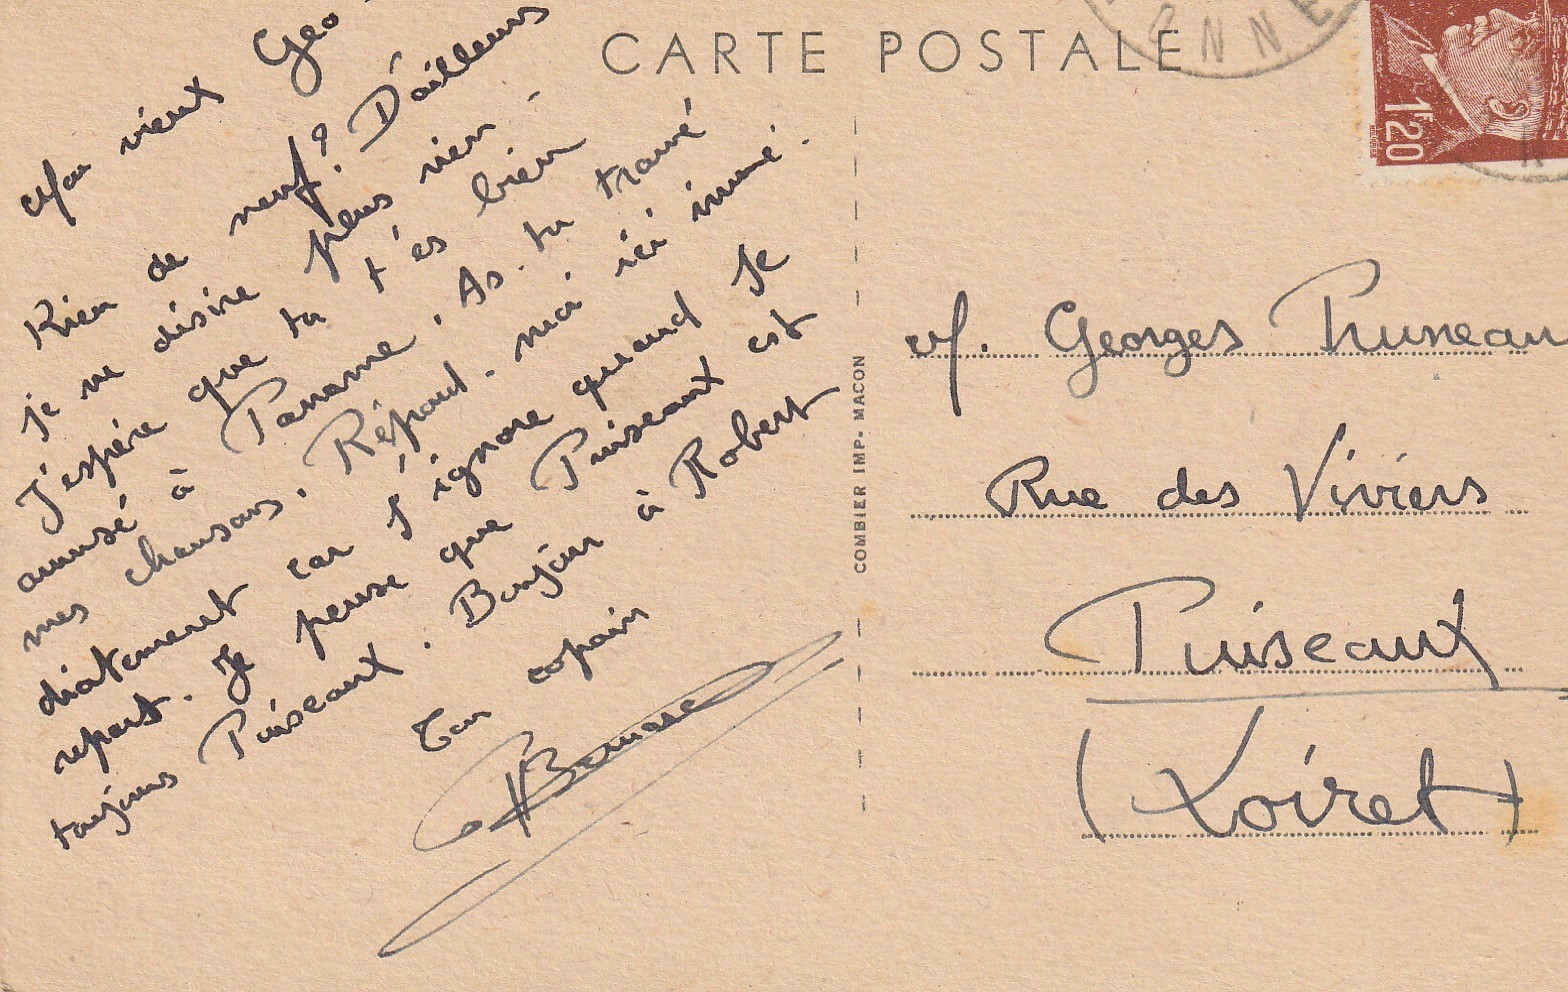 CARTE POSTALE
NNE
1F20
Mon vieux Geo
Rien de neuf? D'ailleurs
je ne désire plus rien.
J'espère que tu t'es bien
amusé à Paname. As-tu trouvé
mes chansons. Répond-moi ici immé-
diatement car j'ignore quand je
repart. Je pense que Puiseaux est
toujours Puiseaux. Bonjour à Robert
Ton copain
Bernard
COMBIER IMP. MACON
M. Georges Pruneau
Rue des Viviers
Puiseaux
(Loiret)